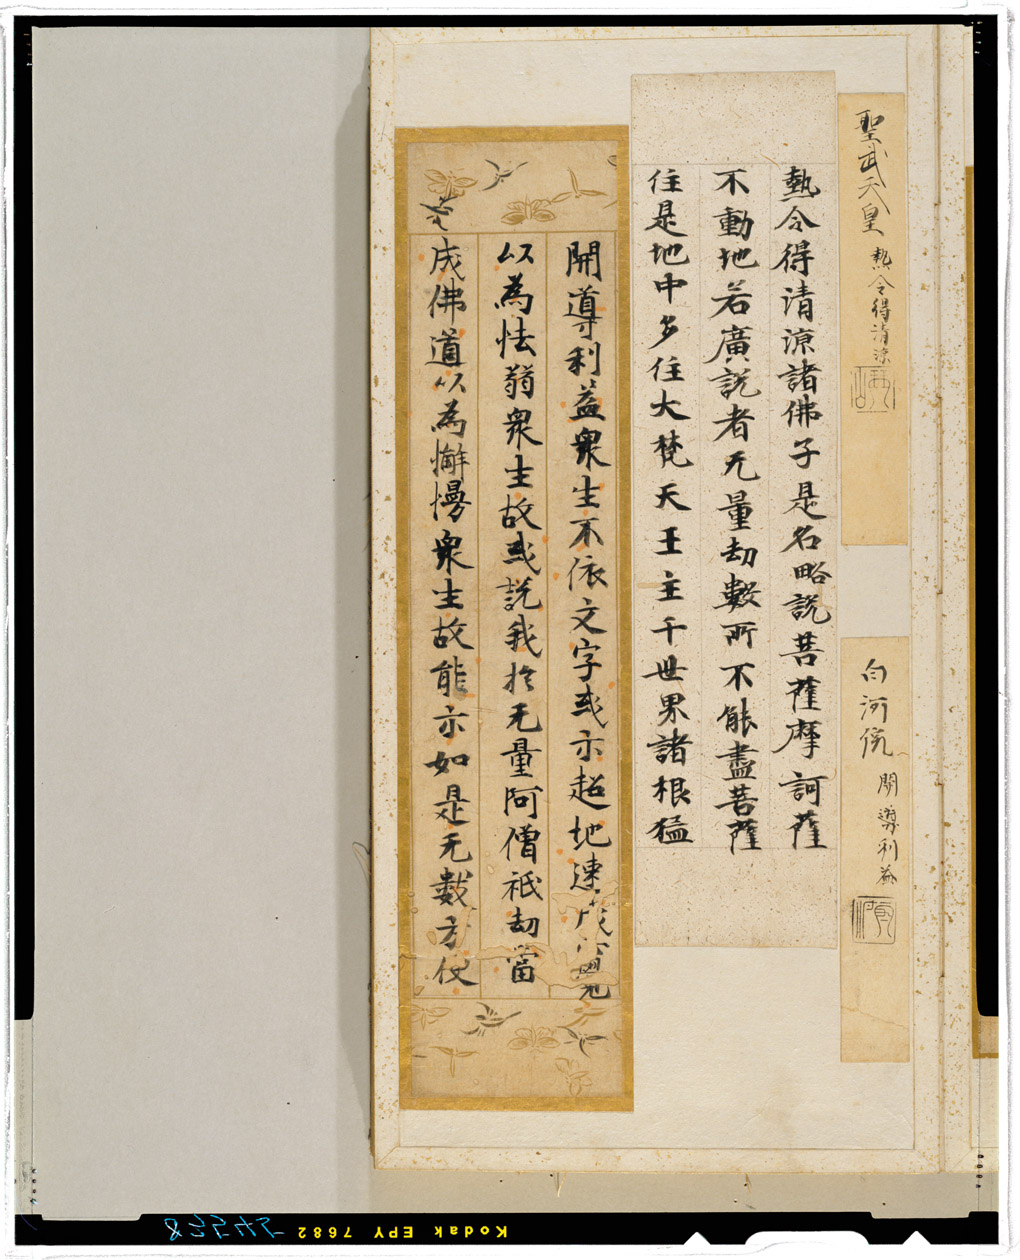 聖武天皇 熱令得清涼
熱令得清涼諸佛子是名略說菩薩摩訶薩
不動地若廣說者无量劫數所不能盡菩薩
住是地中多住大梵天王主千世界諸根猛
白河院 開導利益
開導利益衆生不依文字或示超地速成正覺
以為怯弱衆生故或說我於无量阿僧祇劫當
成佛道以為懈慢衆生故能示如是无數方便
Kodak EPY 7682